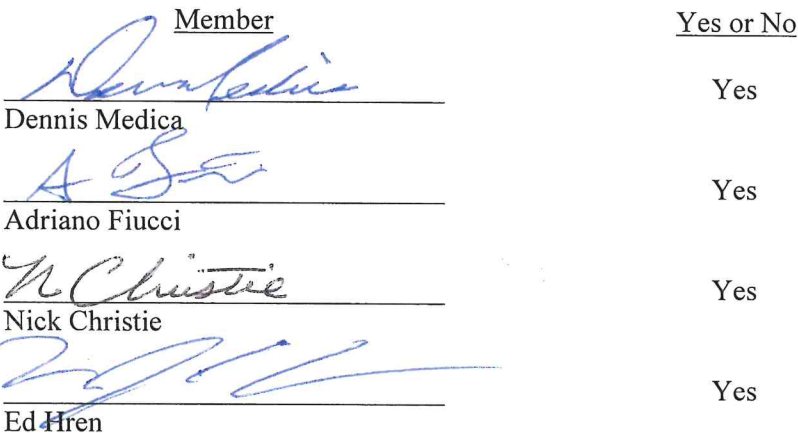 Member Yes or No
Yes
Dennis Medica
Yes
Adriano Fiucci
N Christie Yes
Nick Christie
Yes
Ed Hren